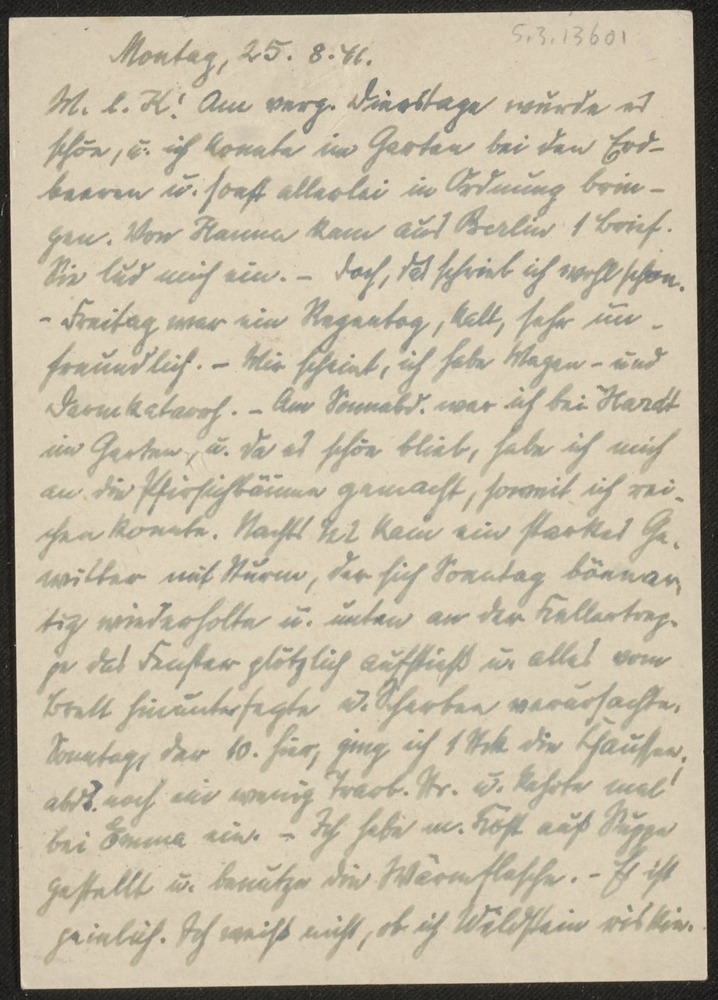 5.3.13601
Montag, 25. 8. 41.
M. l. K.! Am verg. Dienstage wurde es
schön, u. ich konnte im Garten bei den Erd-
beeren u. sonst allerlei in Ordnung brin-
gen. Von Hanna kam aus Berlin 1 Brief.
Sie lud mich ein. – Doch, das schrieb ich wohl schon.
– Freitag war ein Regentag, kalt, sehr un-
freundlich. – Mir scheint, ich habe Magen- und
Darmkatarrh. – Am Sonnabd. war ich bei Hardt
im Garten, u. da es schön blieb, habe ich mich
an die Pfirsichbäume gemacht, soweit ich rei-
chen konnte. Nachts ½2 kam ein starkes Ge-
witter mit Sturm, der sich Sonntag böenar-
tig wiederholte u. unten an der Kellertrep-
pe das Fenster plötzlich aufstieß u. alles vom
Brett hinunterfegte u. Scherben verursachte.
Sonntag, der 10. hier, ging ich 1 Std. die Chaussee,
abds. noch ein wenig Trarb. Str. u. kehrte mal
bei Emma ein. – Ich habe m. Kost auf Suppe
gestellt u. benutze die Wärmflasche. – Es ist
peinlich. Ich weiß nicht, ob ich Waldstein riskie-